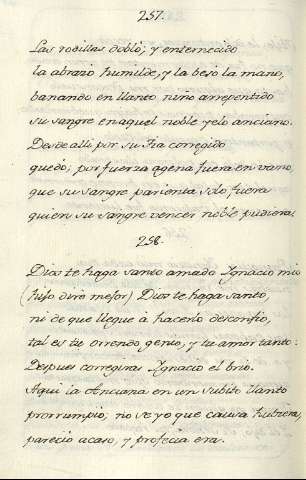 257.
Las rodillas dobló; y enternecido
la abrazó humilde, y la besó la mano,
banando en llanto niño arrepentido
su sangre en aquel noble yelo anciano.
Desde alli por su tia corregido
quedó; por fuerza agena fuera en vano,
que su sangre parienta solo fuera
quien su sangre vencer noble pudiera.
258.
Dios te haga santo amado Ignacio mio
(hijo diré mejor) Dios te haga santo,
ni de que llegue à hacerlo desconfio,
tal es tu orrendo genio, y tu amor tanto:
Despues corregiras Ignacio el brio.
Aqui la Anciana en un subito llanto
prorrumpió; no se yo que causa hubiera,
pareció acaso, y profecia era.